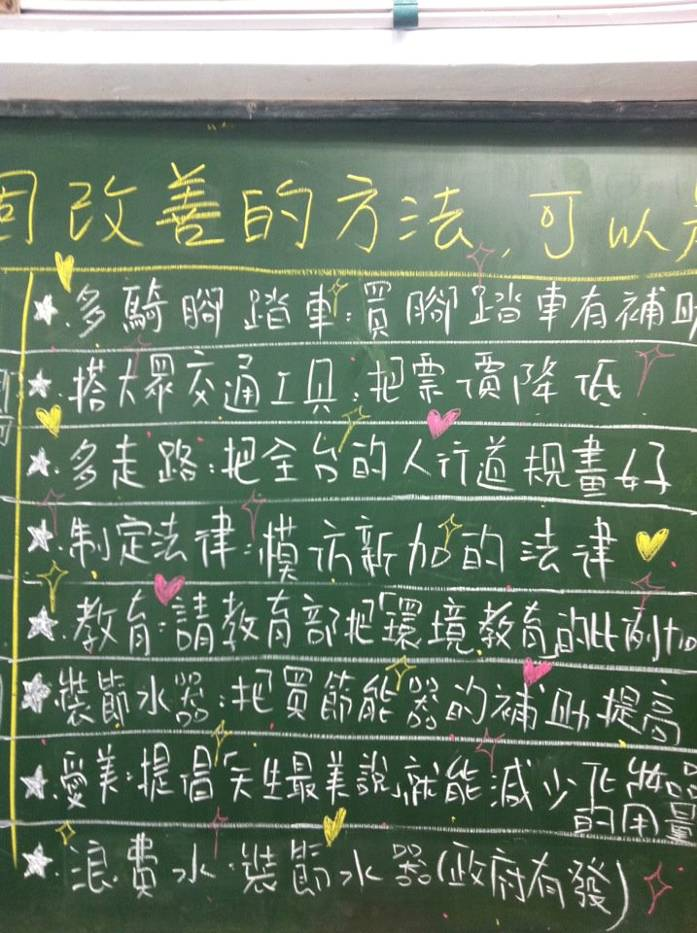 改善的方法,可以
多騎腳踏車:買腳踏車有補助
搭大眾交通工具:把票價降低
多走路:把全台的人行道規畫好
制定法律:模仿新加的法律
教育:請教育部把「環境教育的比例加
裝節水器:把買節能器的補助提高
愛美:提倡「天生最美說」就能減少化妝品的用量
浪費水:裝節水器(政府有發)